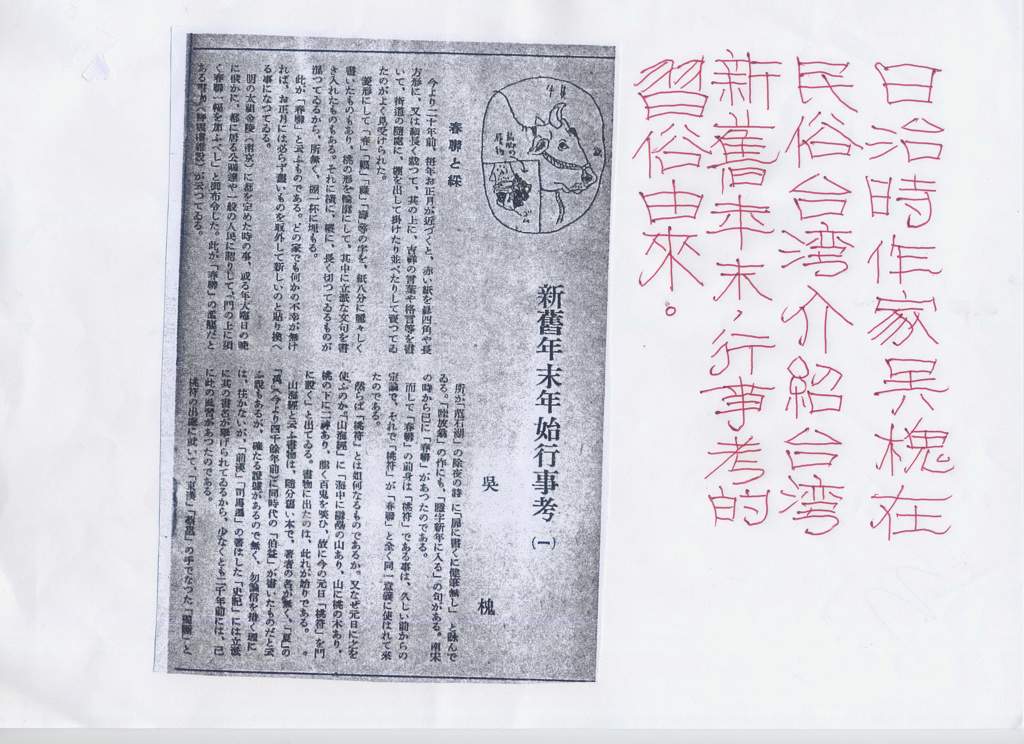 日治時作家吳槐在
民俗台湾介紹台湾
新舊年末,行事考的
習俗由來。
新舊年末年始行事考(一)
吳 槐
春聯と綵
今より二十年前、毎年お正月が近づくと、赤い紙を眞四角や長
方形に、又は細長く裁つて、其の上に、吉祥の言葉や格言等を書
いて、街道の隨處に、棚を出して掛けたり並べたりして賣つてゐ
たのがよく見受けられた。
菱形にして「春」「福」「祿」「壽」等の字を、紙八分に麗々しく
書いたものもあり、桃の形を輪廓にして、其中に立派な文句を書
き入れたものもある。それに橫に、縱に、長く切つてゐるものが
混つてゐるから、所無く、棚一杯に埋もる。
此が「春聯」と云ふものである。どの家でも何かの不幸が無け
れば、お正月には必らず舊いものを取外して新しいのと貼り換へ
る事になつてゐる。
明の太祖金陵(南京)に都を定めた時の事、或る年大晦日の晩
に俄かに、都に居る公卿達や一般の人民に詔りして、「門の上に須
く春聯一幅を加ふべし」と御布令した。此が「春聯」の濫觴だと
ある書物(簪雲樓雜說)が云つてゐる。
所が「范石湖」の除夜の詩に「扉に書くに他筆無し」と詠んで
ゐる。
の作にも、「臘字新年に入る」の句がある。南宋
の時から已に「春聯」があつたのである。
而して「春聯」の前身は「桃符」である事は、久しい前からの
定論で、それで「桃符」が「春聯」と全く同一意義に使はれて來
たのである。
然らば「桃符」とは如何なるものであるか。又なぜ元日に之を
使ふのか。「山海經」に「海中に度朔の山あり、山に桃の木あり、
桃の下に二神あり、能く百鬼を啖ひ、故に今の元日「桃符」を門
に設く」と出てゐる。書物に出たのは、此れが始りである。
山海經と云ふ書物は、隨分舊い本で、著者の名が無く、「夏」の
「禹」(今より四千餘年前)と同時代の「伯益」が書いたものだと云
ふ說もあるが、確たる證據があるので無く、勿論信を措く理に
は、往かないが、「前漢」「司馬遷」の著はした「史記」には立派
に其の書名が擧げられてゐるから、少なくとも二千年前には、已
に此の風習があつたのである。
桃符の出處に就いて、「東漢」「蔡邕」の手でなつた「獨斷」と